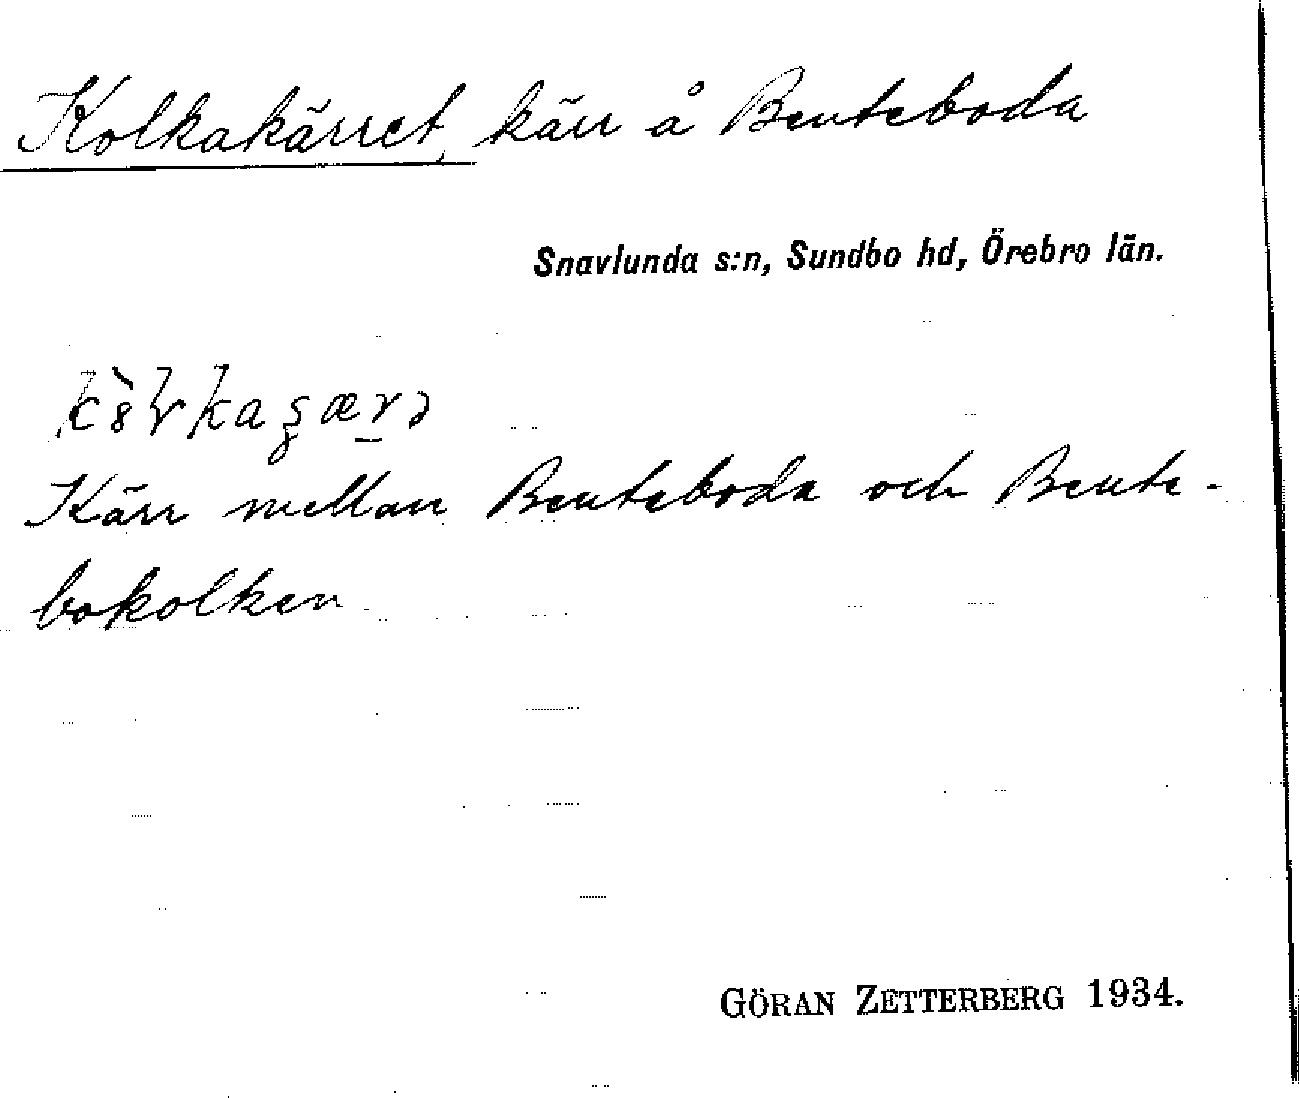 Kolkakärret, kärr å Benteboda
Snavlunda s:n, Sundbo hd, Örebro län.
Kärr mellan Benteboda och Bente-
bokolken
GÖRAN ZETTERBERG 1934.